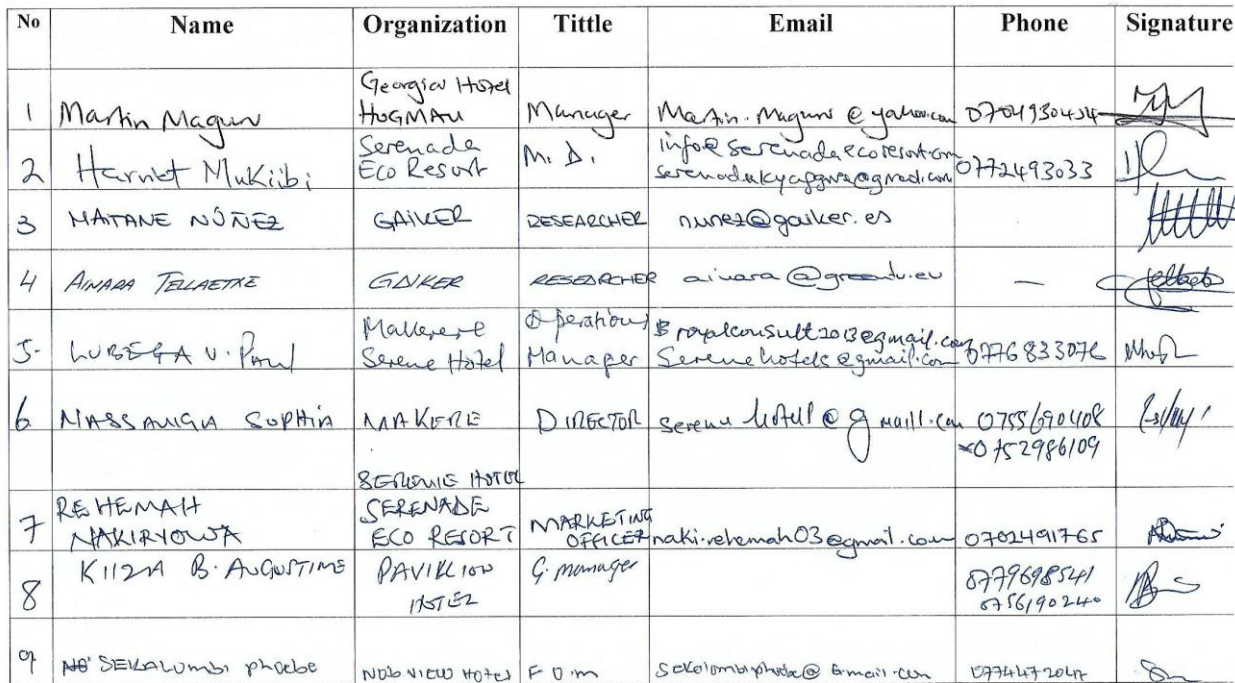 No Name Organization Tittle Email Phone Signature
1 Martin Magunu Georgia Hotel HOGMAU Manager Martin.Magunu@yahoo.com 0704930434
2 Harriet Mukiibi Serenada Eco Resort M.D. info@serenadaecoresort.com 0772493033
3 MAITANE NÚÑEZ GAIKER RESEARCHER nunez@gaiker.es
4 AINARA TELLAETXE GAIKER RESEARCHER ainara@greentv.eu —
5. LUBEGA V. Paul Makerere Serene Hotel Operations Manager royalconsult2013@gmail.com Serenehotels@gmail.com 0776833076
6 SOPHIA MAKERE SERENE HOTEL DIRECTOR serene hotel@gmaill.com 0755690408 0752986109
7 REHEMAH NAKIRYOWA SERENADE ECO RESORT MARKETING OFFICER naki.rehemah03@gmail.com 0702491765
8 KIIZA B. AUGUSTINE PAVILLION HOTEL G. manager 0779698541 0756190240
9 SEKALUMBI phoebe VIEW HOTEL F O m